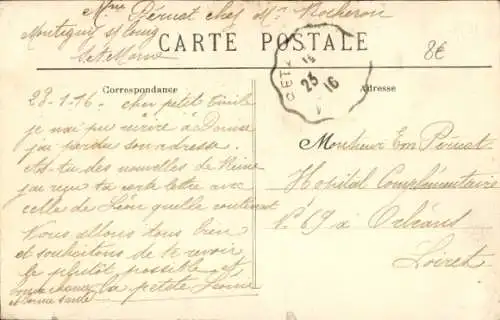 Mme Péruet chez Mr Rocheron
Montigny st loing
Set Marne
CARTE POSTALE
8€
23
16
Correspondance
Adresse
28-1-16 - cher petit Emile
je n'ai pu écrire à Denise
j'ai perdu son adresse.
As-tu des nouvelles de Reine
j'ai reçu ta carte lettre avec
celle de Léon quelle contenait
Nous allons tous bien
et souhaitons de te revoir
le plutôt possible et
bonne chance la petite Léone
et bonne santé
Monsieur Em Péruet
Hopital Complémentaire
N° 69 à Orléans
Loiret